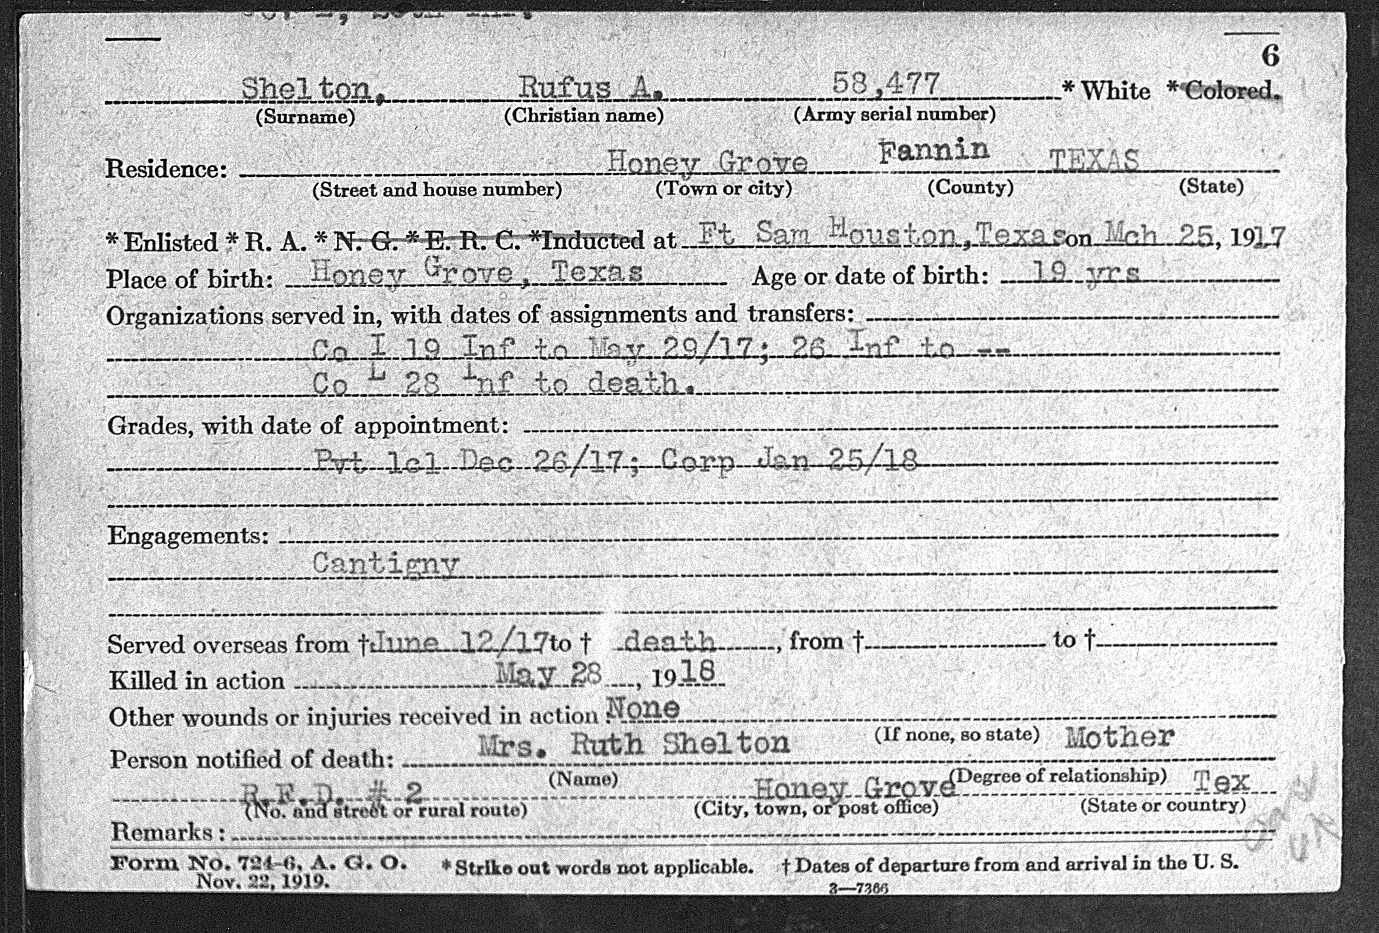 6
Shelton, Rufus A. 58,477 * White * Colored.
(Surname) (Christian name) (Army serial number)
Residence: Honey Grove Fannin TEXAS
(Street and house number) (Town or city) (County) (State)
* Enlisted * R. A. * N. G. * E. R. C. * Inducted at Ft Sam Houston, Texas on Mch 25, 1917
Place of birth: Honey Grove, Texas Age or date of birth: 19 yrs
Organizations served in, with dates of assignments and transfers:
Co I 19 Inf to May 29/17; 26 Inf to --
Co L 28 Inf to death.
Grades, with date of appointment:
Pvt 1cl Dec 26/17; Corp Jan 25/18
Engagements:
Cantigny
Served overseas from † June 12/17 to † death, from † to †
Killed in action May 28, 1918
Other wounds or injuries received in action: None
(If none, so state)
Person notified of death: Mrs. Ruth Shelton Mother
(Name) (Degree of relationship)
R.F.D. # 2 Honey Grove Tex
(No. and street or rural route) (City, town, or post office) (State or country)
Remarks:
Form No. 724-6, A. G. O. * Strike out words not applicable. † Dates of departure from and arrival in the U. S.
Nov. 22, 1919. 3—7366